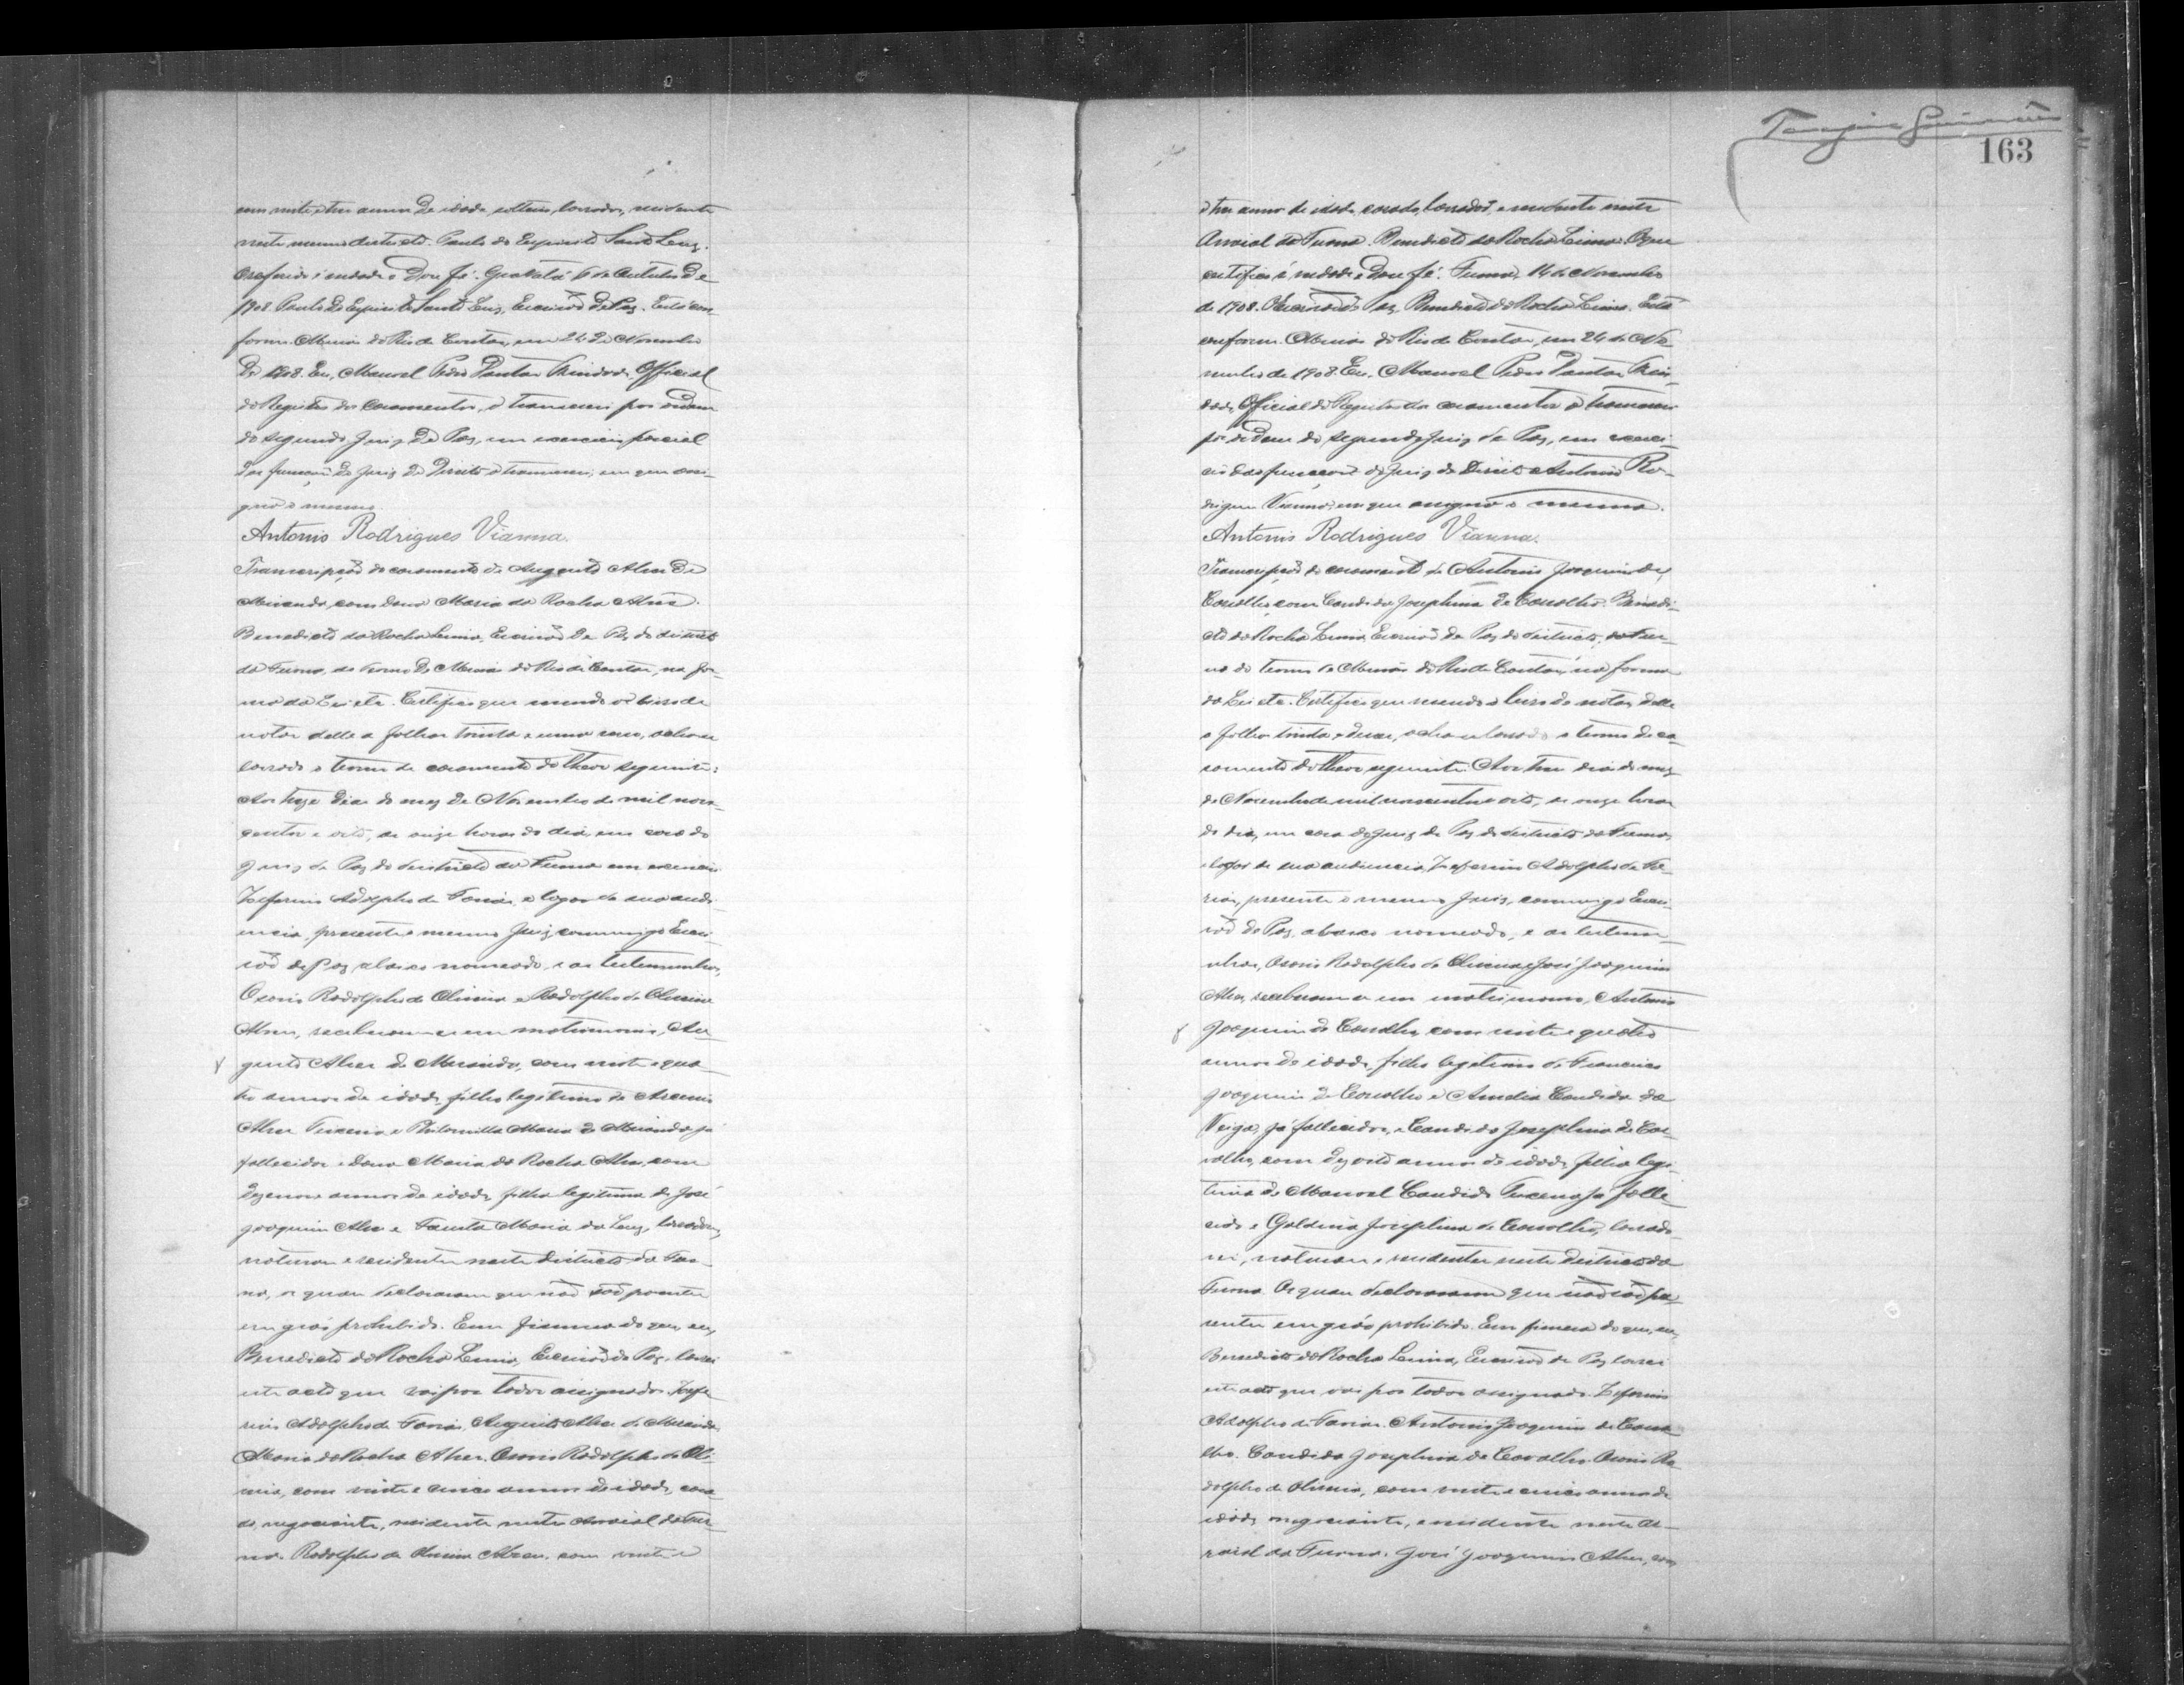 com vinte e tres annos de idade, solteiro, lavrador, residente
neste mesmo districto. Paulo do Espirito Santo Luz.
O referido é verdade e Dou fé. Guaratá 6 de Outubro de
1908. Paulo do Espirito Santo Luz, Escrivão de Paz. Está con-
forme. Minas do Rio de Contas, em 24 de Novembro
De 1908. Eu, Manoel Pedro Dantas Trindade, Official
do Registro dos casamentos, o transcrevi por ordem
do segundo Juiz de Paz, em exercicio parcial
das funcções de Juiz de Direito o transcrevi, em que assi-
gna o mesmo.
Antonio Rodrigues Vianna.
Transcripção do casamento de Augusto Alves de
Miranda, com dona Maria da Rocha Alves.
Benedicto da Rocha Lima, Escrivão de Paz do districto
da Furna, do termo de Minas do Rio de Contas, na for-
ma da Lei etc. Certifico que revendo o livro de
notas delle a folhas trinta e uma verso, acha-se
lavrado o termo de casamento do theor seguinte:
Aos treze dias do mez de Novembro de mil nove-
centos e oito, as onze horas do dia, em casa do
Juiz de Paz do districto da Furna em exercicio
Zeferino Adolpho de Farias, e logar de sua audi-
encia, presente o mesmo Juiz, commigo Escri-
vão de Paz, abaixo nomeado, e as testemunhas,
Osorio Rodolpho de Oliveira e Rodolpho de Oliveira
Alves, receberam-se em matrimonio, Au-
gusto Alves de Miranda, com vinte e qua-
tro annos de idade, filho legitimo de Arsenio
Alves Terceiro e Philomilla Maria de Miranda já
fallecidos e dona Maria da Rocha Alves, com
dezenove annos de idade, filha legitima de José
Joaquim Alves e Fausta Maria da Luz, lavradores,
naturaes e residentes neste districto da Fur-
na, os quaes declararam que não são parentes
em gráo prohibido. Em firmeza do que, eu,
Benedicto da Rocha Lima, Escrivão de Paz, lavrei
este acto que vai por todos assignados. Zefe-
rino Adolpho de Farias, Augusto Alves de Miranda,
Maria da Rocha Alves. Osorio Rodolpho de Oli-
veira, com vinte e cinco annos de idade, casa-
do, negociante, residente neste Arraial da Fur-
na. Rodolpho de Oliveira Alves, com vinte e
163
e tres annos de idade, casado, lavrador, e residente neste
Arraial da Furna. Benedicto da Rocha Lima. O que
certifico é verdade e Dou fé. Furna, 14 de Novembro
de 1908. O Escrivão de Paz, Benedicto da Rocha Lima. Está
conforme. Minas do Rio de Contas, em 24 de No-
vembro de 1908. Eu, Manoel Pedro Dantas Trin-
dade, Official do Registro dos casamentos o transcrevi
por ordem do segundo Juiz de Paz, em exerci-
cio das funcções de Juiz de Direito Antonio Ro-
drigues Vianna, em que assigna o mesmo.
Antonio Rodrigues Vianna.
Transcripção do casamento de Antonio Joaquim de
Carvalho, com Candida Josephina de Carvalho. Benedi-
cto da Rocha Lima, Escrivão de Paz do districto, da Fur-
na do termo de Minas do Rio de Contas, na forma
da Lei etc. Certifico que revendo o livro de notas delle
a folhas trinta e duas, acha-se lavrado o termo de ca-
samento do theor seguinte. Aos tres dias do mez
de Novembro de mil novecentos e oito, as onze horas
do dia, em casa do Juiz de Paz do districto da Furna,
e logar de sua audiencia, Zeferino Adolpho de Fa-
rias, presente o mesmo Juiz, commigo Escri-
vão de Paz, abaixo nomeado, e as testemu-
nhas, Osorio Rodolpho de Oliveira e José Joaquim
Alves, receberam-se em matrimonio, Antonio
Joaquim de Carvalho, com vinte e quatro
annos de idade, filho legitimo de Francisco
Joaquim de Carvalho e Amelia Candida da
Veiga, já fallecidos, e Candida Josephina de Car-
valho, com dezoito annos de idade, filha legi-
tima de Manoel Candido Terceiro já falle-
cido e Galdina Josephina de Carvalho, lavrado-
res, naturaes e residentes neste districto da
Furna. Os quaes declararam que não são pa-
rentes em gráo prohibido. Em firmeza do que, eu,
Benedicto da Rocha Lima, Escrivão de Paz lavrei
este acto que vai por todos assignado. Zeferino
Adolpho de Farias. Antonio Joaquim de Carva-
lho. Candida Josephina de Carvalho. Osorio Ro-
dolpho de Oliveira, com vinte e cinco annos de
idade, negociante, e residente neste Ar-
raial da Furna. José Joaquim Alves, com